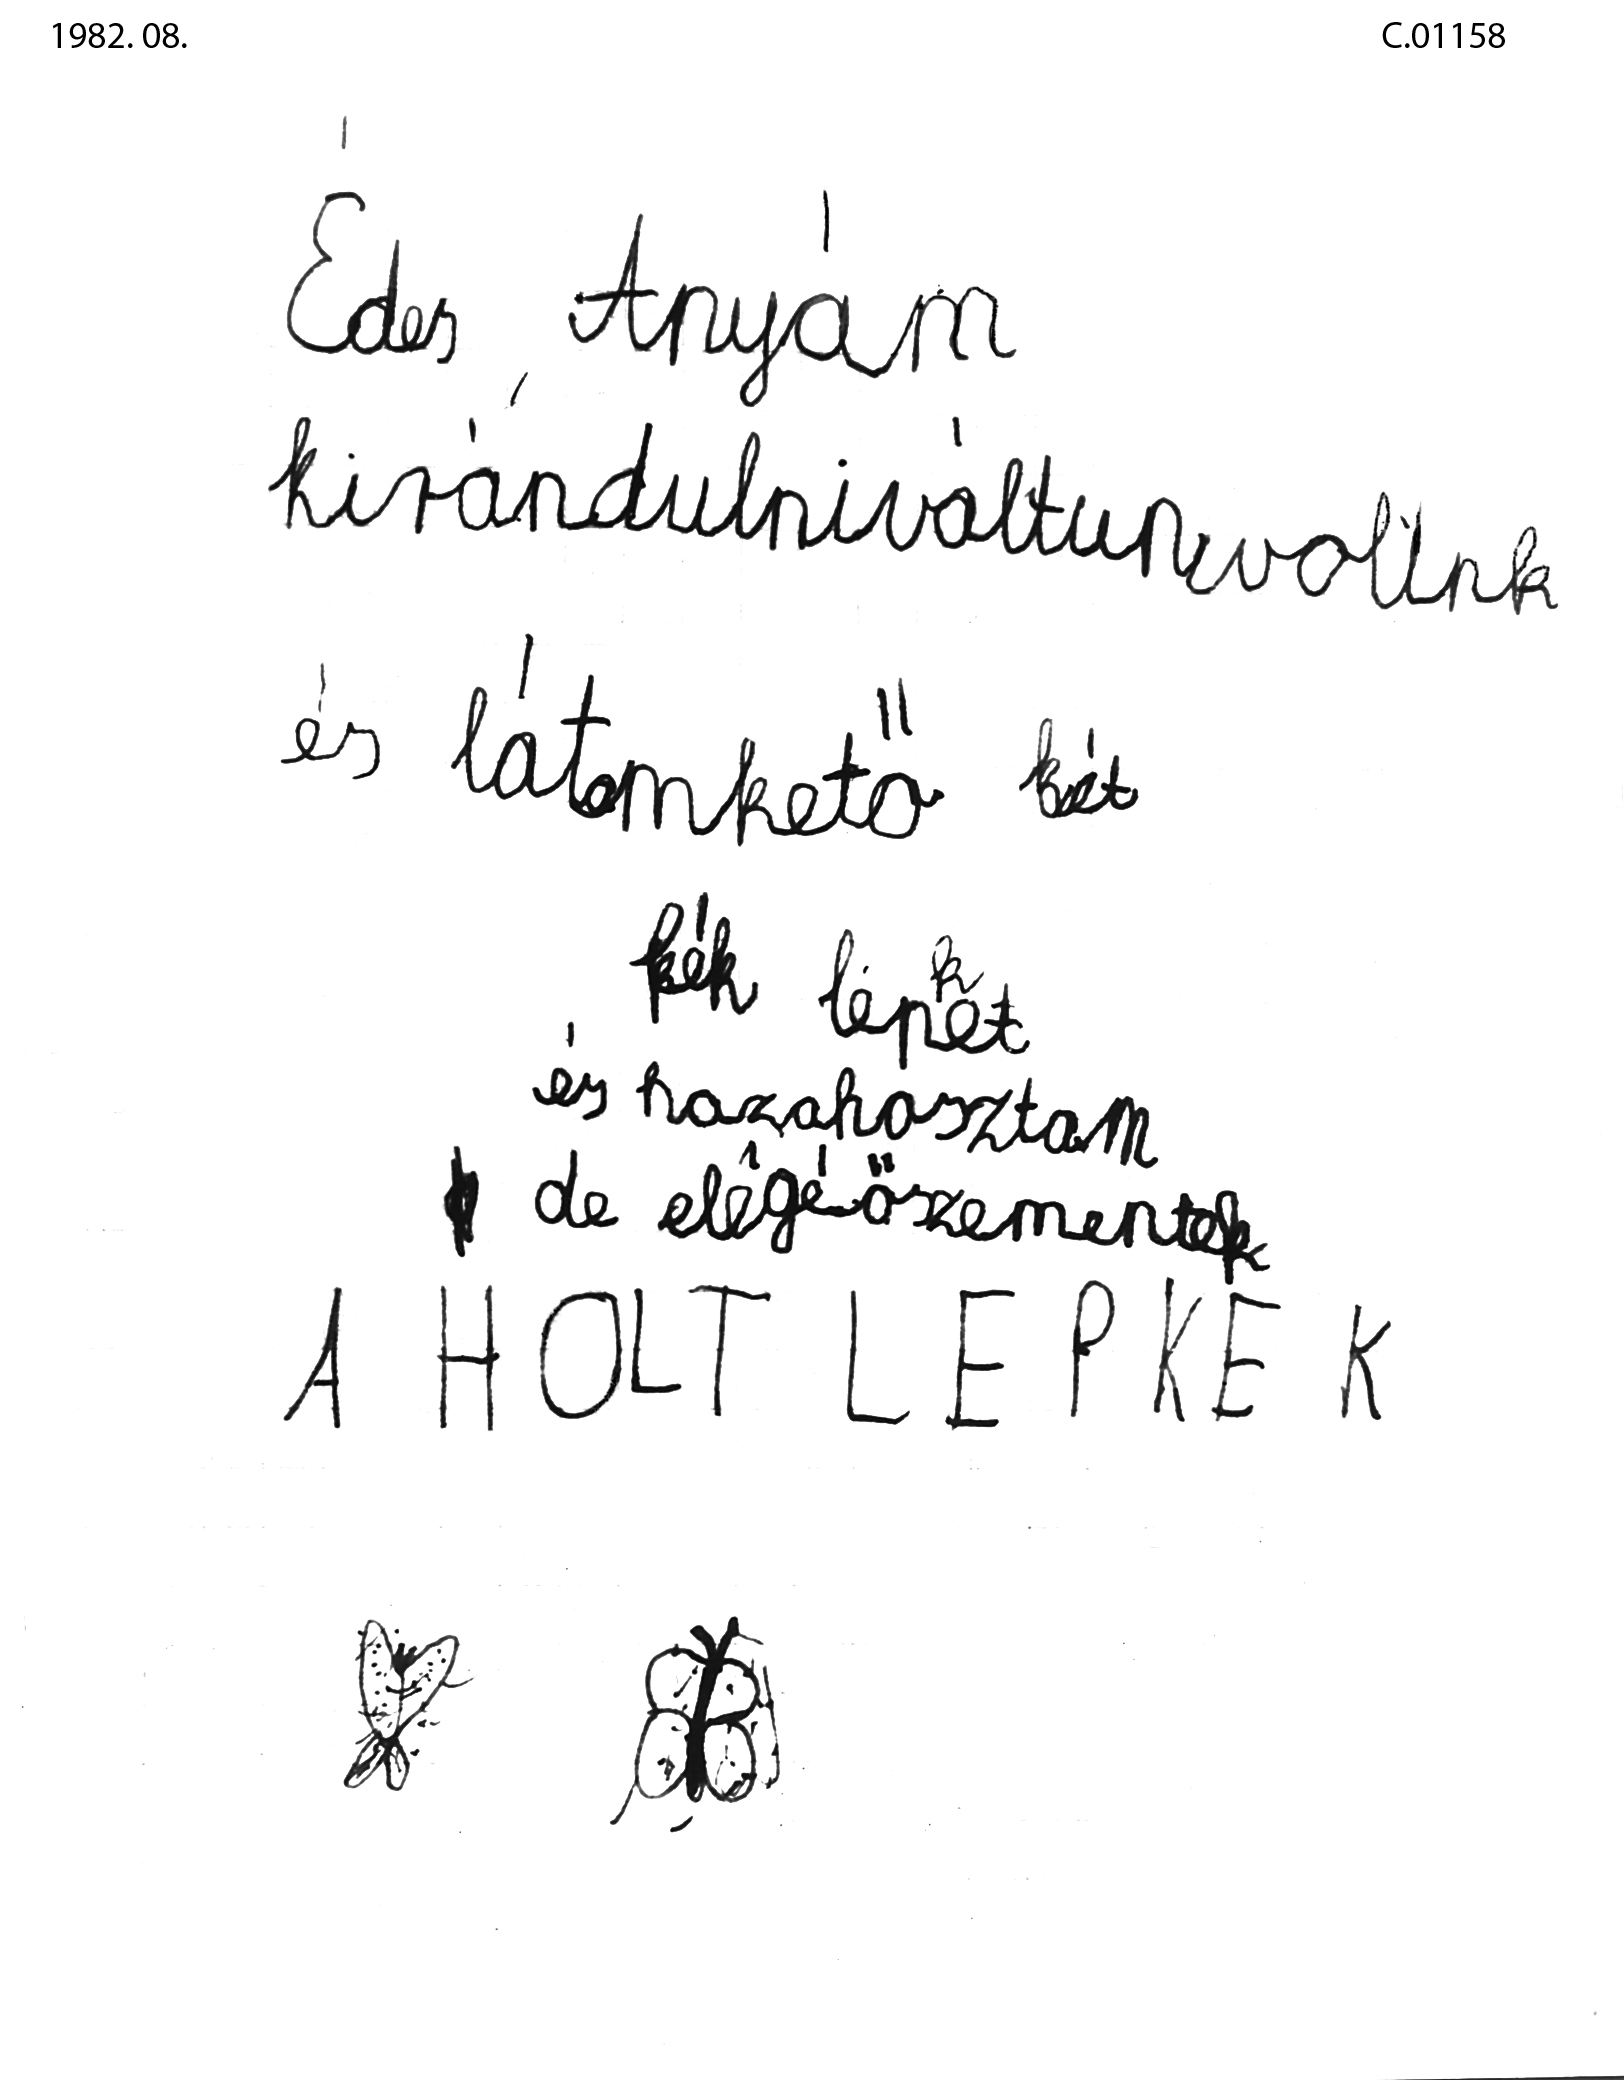 1982. 08. C.01158
Édes Anyám
kirándulniváltunkvolünk
és látomkető két
kék lepket
és hazahosztam
de elégé őszementek
A HOLT LEPKEK